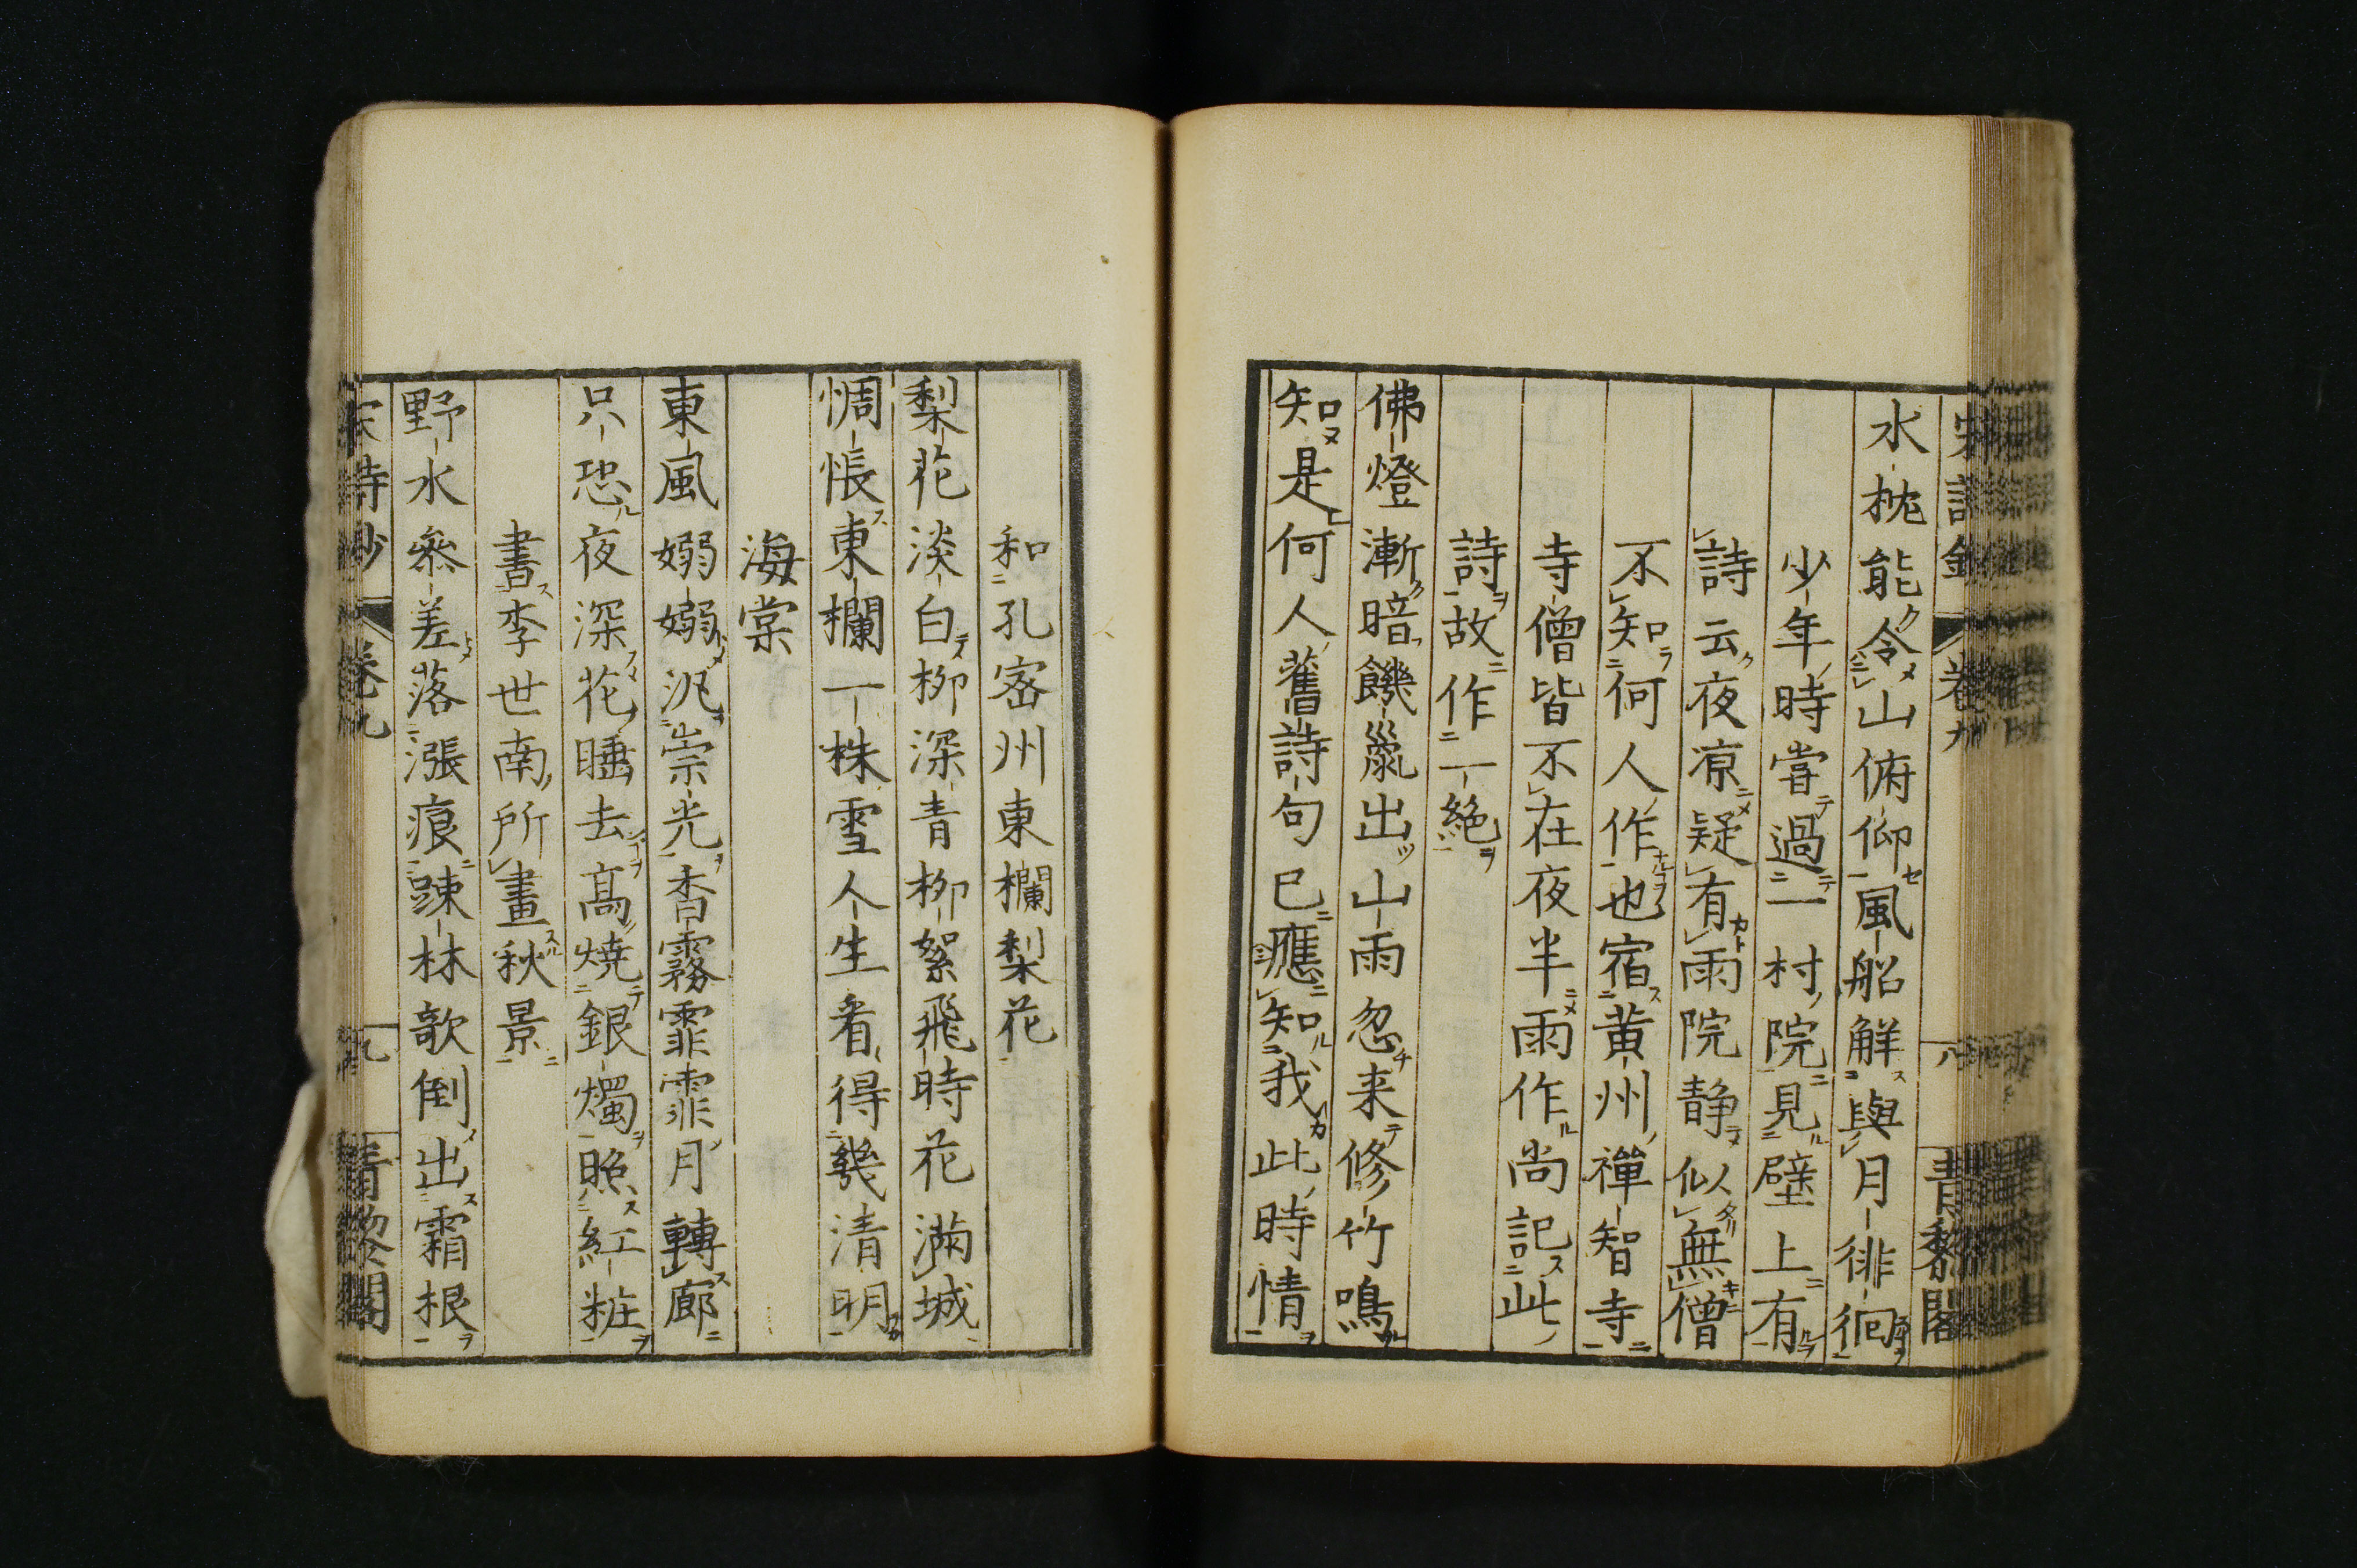 宋詩鈔 卷九 八 青藜閣
水枕能令山俯仰風船解與月徘徊
少年時嘗過一村院見壁上有
詩云夜凉疑有雨院静似無僧
不知何人作也宿黄州禪智寺
寺僧皆不在夜半雨作尚記此
詩故作一絶
佛燈漸暗饑鼠出山雨忽来修竹鳴
知是何人舊詩句已應知我此時情
和孔密州東欄梨花
梨花淡白柳深青柳絮飛時花滿城
惆悵東欄一株雪人生看得幾清明
海棠
東風嫋嫋汎崇光香霧霏霏月轉廊
只恐夜深花睡去高燒銀燭照紅粧
書李世南所畫秋景
野水參差落漲痕踈林欹倒出霜根
宋詩鈔 卷九 九 青藜閣